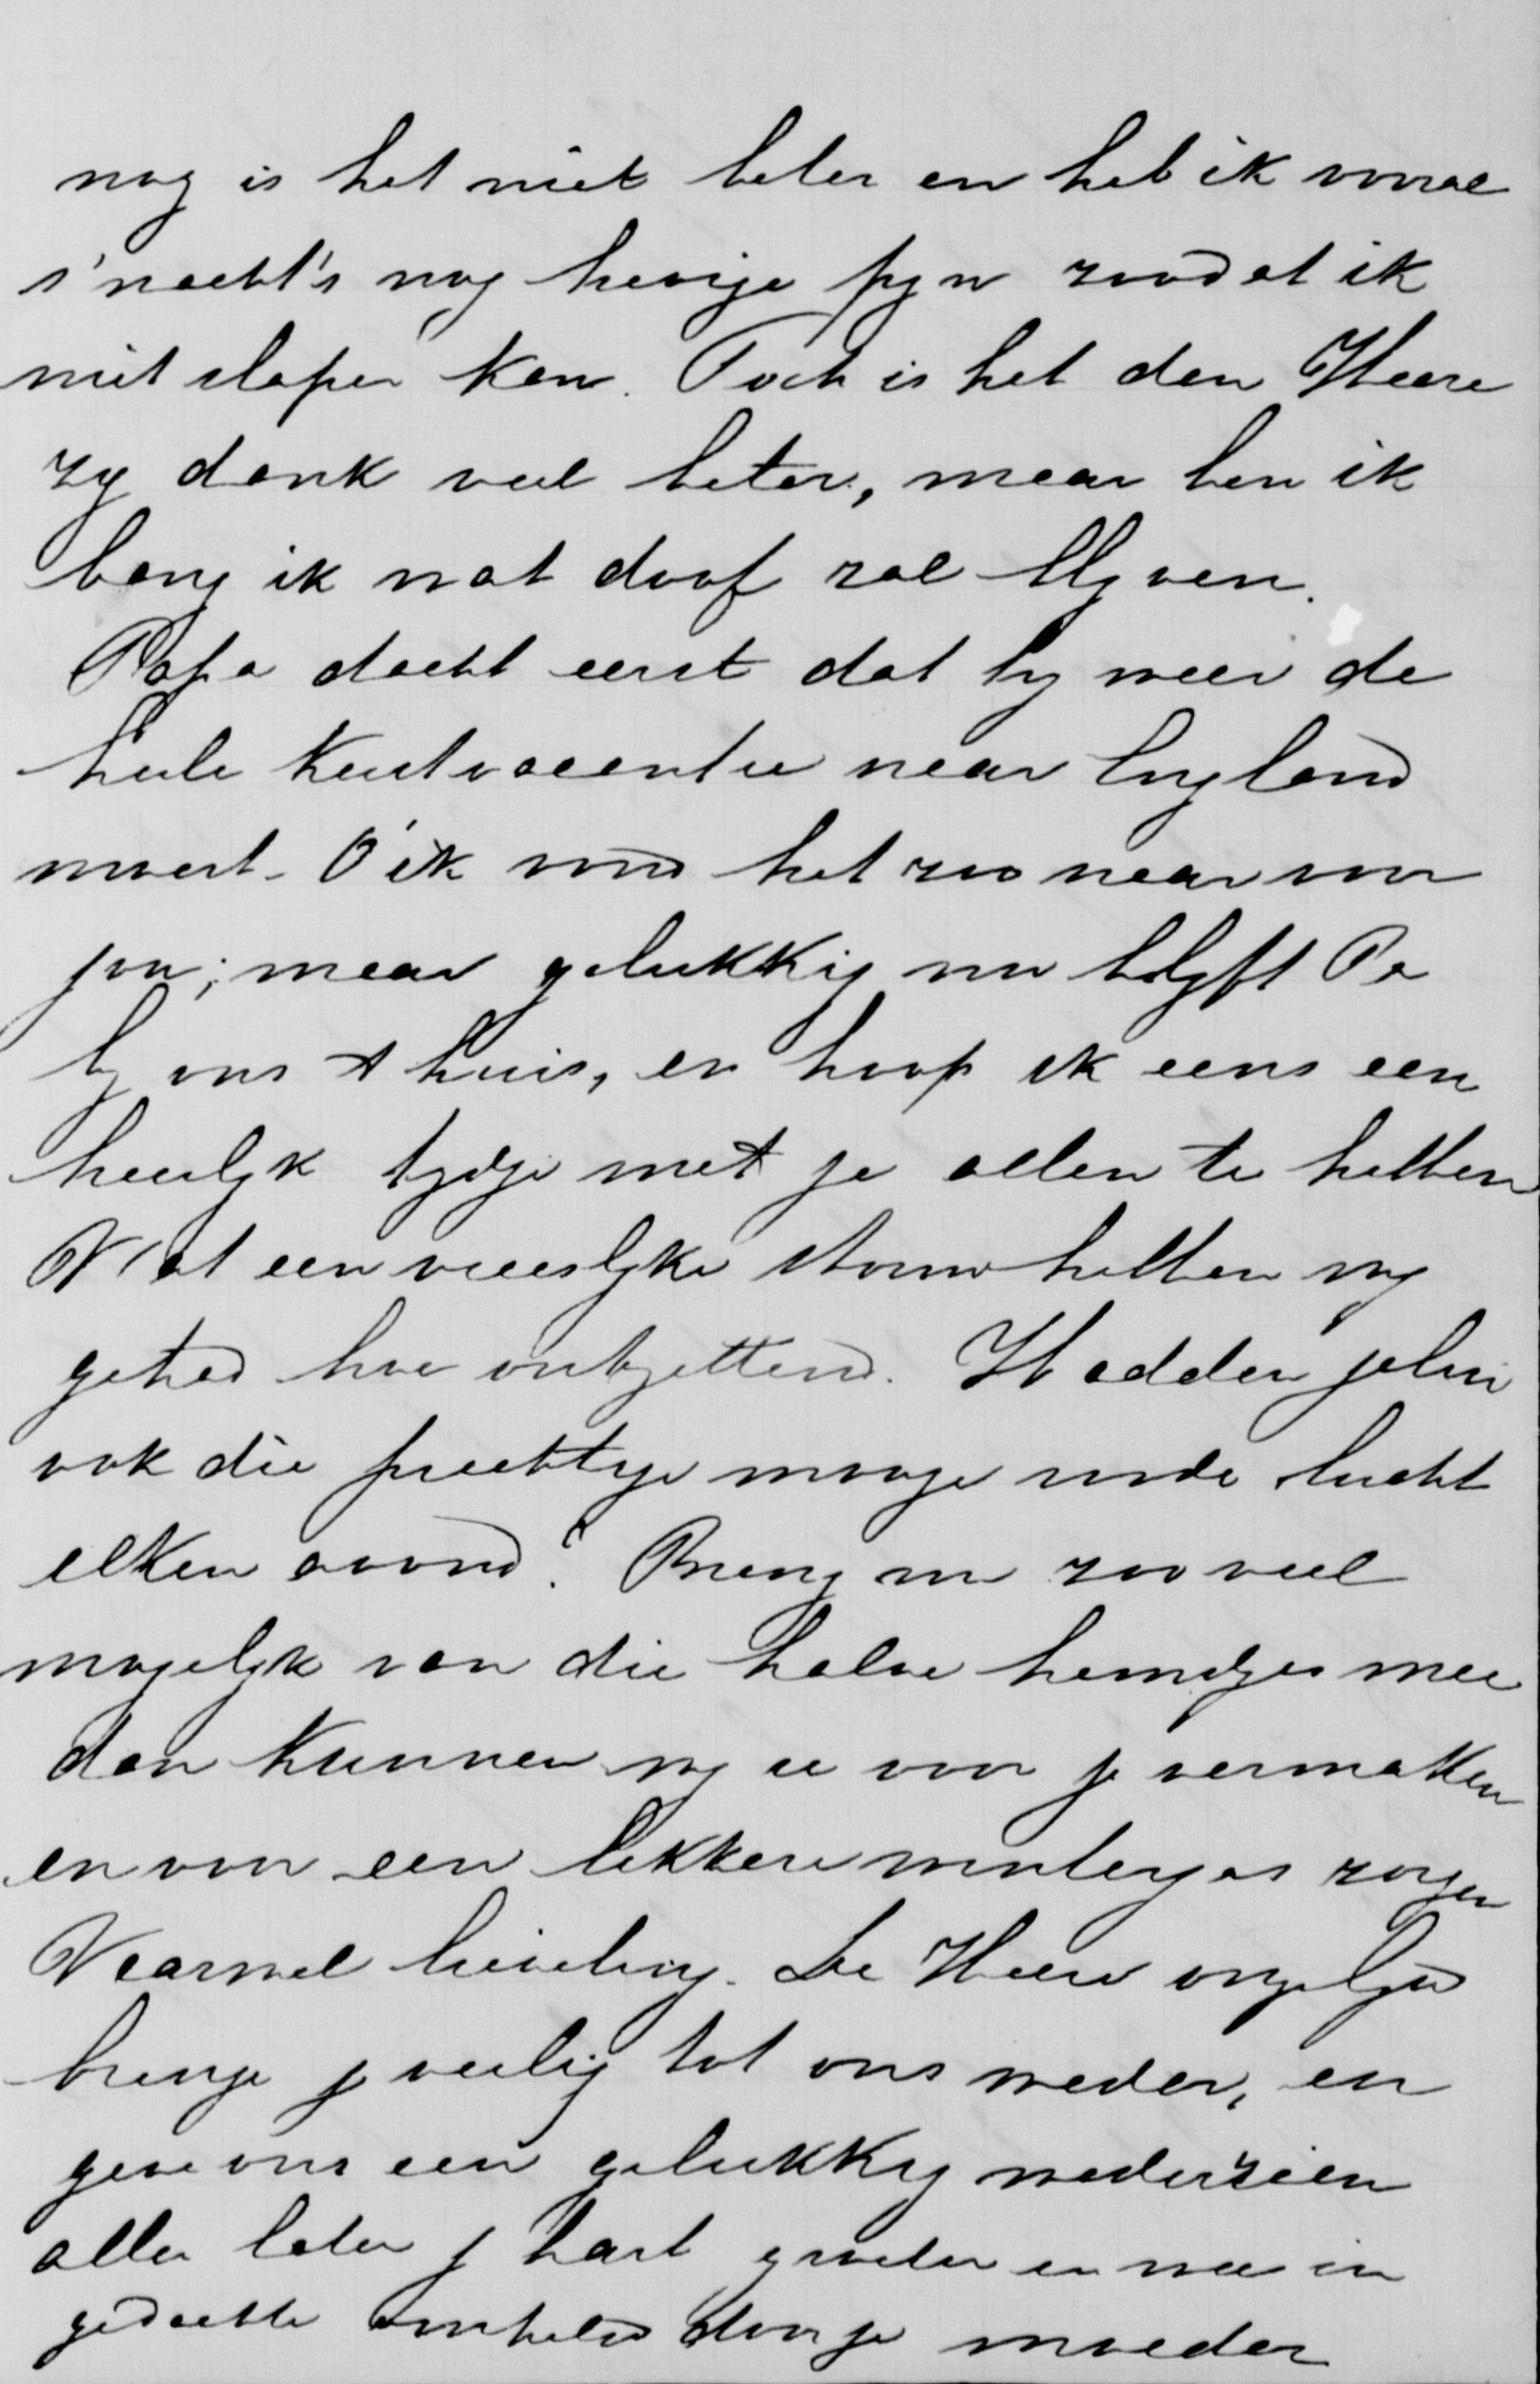 nog is het niet beter en heb ik vooral
s'nacht's nog hevige pyn zoodat ik
niet slapen kan. Toch is het den Heere
zy dank veel beter, maar ben ik
bang ik wat doof zal blyven.
Papa dacht eerst dat hy weer de
heele Kerstvacantie naar England
moest. O ik vond het zoo naar voor
jou; maar gelukkig nu blyft Pa
by ons t huis, en hoop ik eens een
heerlyk tydje met je allen te hebben
Wat een vreeslyke storm hebben wy
gehad hoe ontzettend. Hadden jelui
ook die prachtige mooije roode lucht
elken avond? Breng nu zooveel
mogelyk van die halve hemdjes mee
dan kunnen wy ze voor je vermaken
en voor een lekkere winterjas zorgen
Vaarwel lieveling. De Heere
brenge je veilig tot ons weder, en
geve ons een gelukkig wederzien
allen laten je hart. groeten en wees in
gedachte omhelsd door je moeder